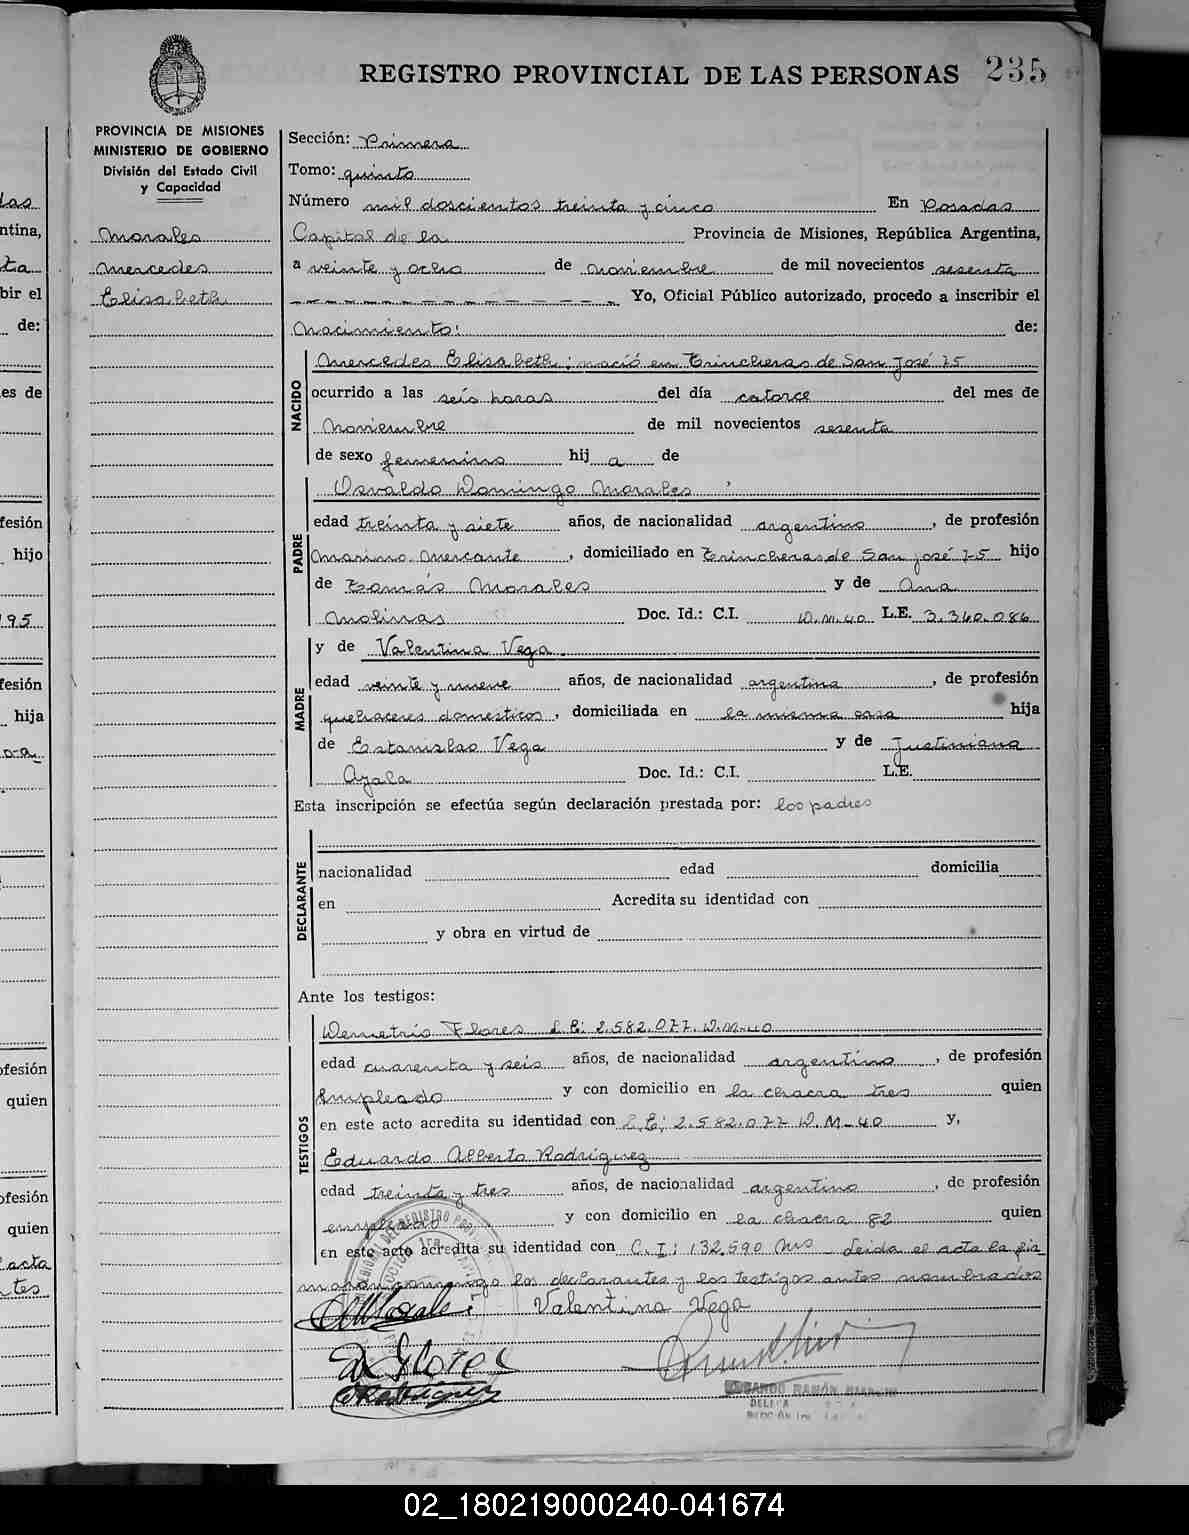 REGISTRO PROVINCIAL DE LAS PERSONAS 235
PROVINCIA DE MISIONES
MINISTERIO DE GOBIERNO
División del Estado Civil
y Capacidad
Morales
Mercedes
Elisabeth
Sección: Primera
Tomo: quinto
Número mil doscientos treinta y cinco En Posadas
Capital de la Provincia de Misiones, República Argentina,
a veinte y ocho de noviembre de mil novecientos sesenta
Yo, Oficial Público autorizado, procedo a inscribir el
Nacimiento: de:
NACIDO
Mercedes Elisabeth; nació en Trincheras de San José 75
ocurrido a las seis horas del día catorce del mes de
Noviembre de mil novecientos sesenta
de sexo femenino hij a de
PADRE
Osvaldo Domingo Morales
edad treinta y siete años, de nacionalidad argentino, de profesión
Marino Mercante, domiciliado en Trincheras de San José 75 hijo
de Tomás Morales y de Ana
Molinas Doc. Id.: C.I. D.M.40 L.E. 3.360.086
MADRE
y de Valentina Vega.
edad veinte y nueve años, de nacionalidad argentina, de profesión
quehaceres domesticos, domiciliada en la misma casa hija
de Estanislao Vega y de Justiniana
Ayala Doc. Id.: C.I. L.E.
Esta inscripción se efectúa según declaración prestada por: los padres
DECLARANTE
nacionalidad edad domicilia
en Acredita su identidad con
y obra en virtud de
Ante los testigos:
TESTIGOS
Demetrio Flores L.E: 2.582.077. D.M-40
edad cuarenta y seis años, de nacionalidad argentino, de profesión
Empleado y con domicilio en la chacra tres quien
en este acto acredita su identidad con L.E; 2.582.077 D.M-40 y,
Eduardo Alberto Rodriguez
edad treinta y tres años, de nacionalidad argentino, de profesión
empleado y con domicilio en la chacra 82 quien
en este acto acredita su identidad con C.I; 132.590 Mns Leida el acta la fir-
maron conmigo los declarantes y los testigos antes nombrados
Valentina Vega
D Flores
ERodriguez
RAMÓN
02_180219000240-041674